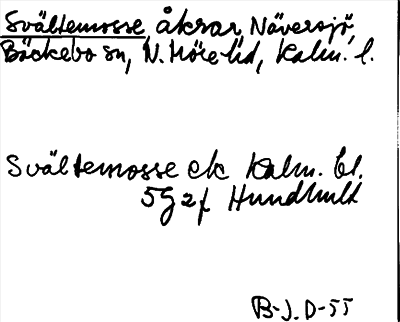 Svältemosse, åkrar Näversjö,
Bäckebo sn, N. Möre hd, Kalm. l.
Svältemosse ek Kalm. bl.
5G 2f Hundhult
B-J. D-55